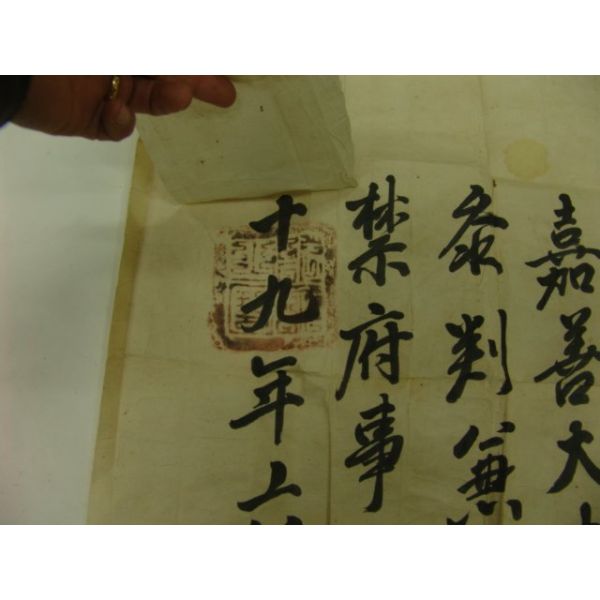 嘉善大
叅判兼
禁府事
十九年上